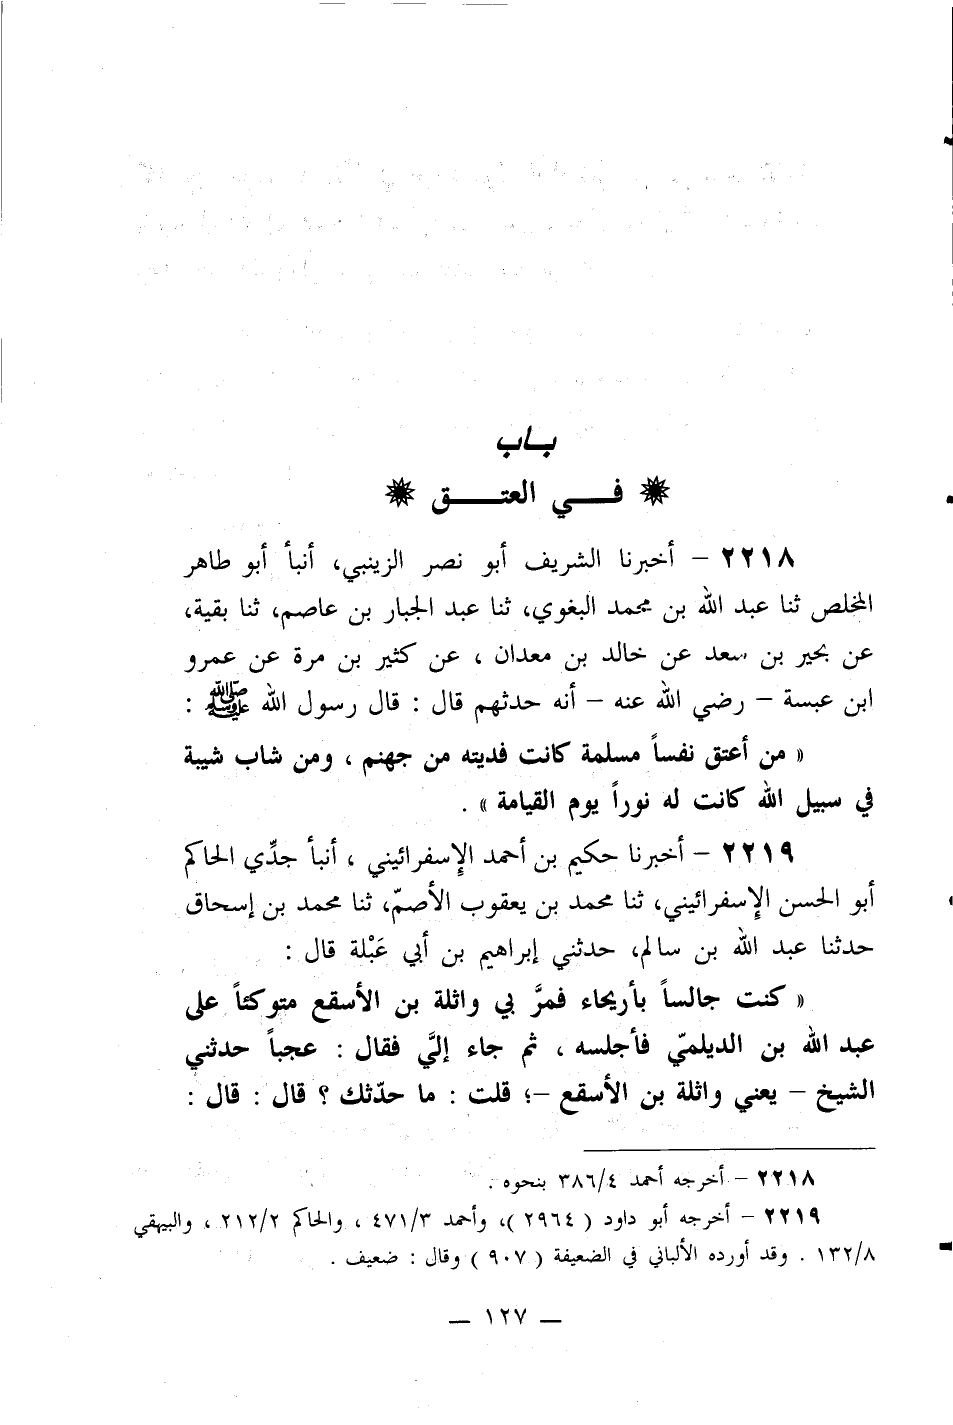 بـاب
فـي العتـق
٢٢١٨ – أخبرنا الشريف أبو نصر الزينبي، أنبأ أبو طاهر
المخلص ثنا عبد الله بن محمد البغوي، ثنا عبد الجبار بن عاصم، ثنا بقية،
عن بحير بن سعد عن خالد بن معدان ، عن كثير بن مرة عن عمرو
ابن عبسة – رضي الله عنه – أنه حدثهم قال : قال رسول الله ﷺ :
« من أعتق نفساً مسلمة كانت فديته من جهنم ، ومن شاب شيبة
في سبيل الله كانت له نوراً يوم القيامة » .
٢٢١٩ – أخبرنا حكيم بن أحمد الإسفرائيني ، أنبأ جدِّي الحاكم
أبو الحسن الإسفرائيني، ثنا محمد بن يعقوب الأصمّ، ثنا محمد بن إسحاق
حدثنا عبد الله بن سالم، حدثني إبراهيم بن أبي عَبْلة قال :
« كنت جالساً بأريحاء فمرَّ بي واثلة بن الأسقع متوكئاً على
عبد الله بن الديلميّ فأجلسه ، ثم جاء إليَّ فقال : عجباً حدثني
الشيخ – يعني واثلة بن الأسقع –؛ قلت : ما حدّثك ؟ قال : قال :
٢٢١٨ – أخرجه أحمد ٣٨٦/٤ بنحوه .
٢٢١٩ – أخرجه أبو داود ( ٢٩٦٤ )، وأحمد ٤٧١/٣ ، والحاكم ٢١٢/٢ ، والبيهقي
١٣٢/٨ . وقد أورده الألباني في الضعيفة ( ٩٠٧ ) وقال : ضعيف .
— ١٢٧ —